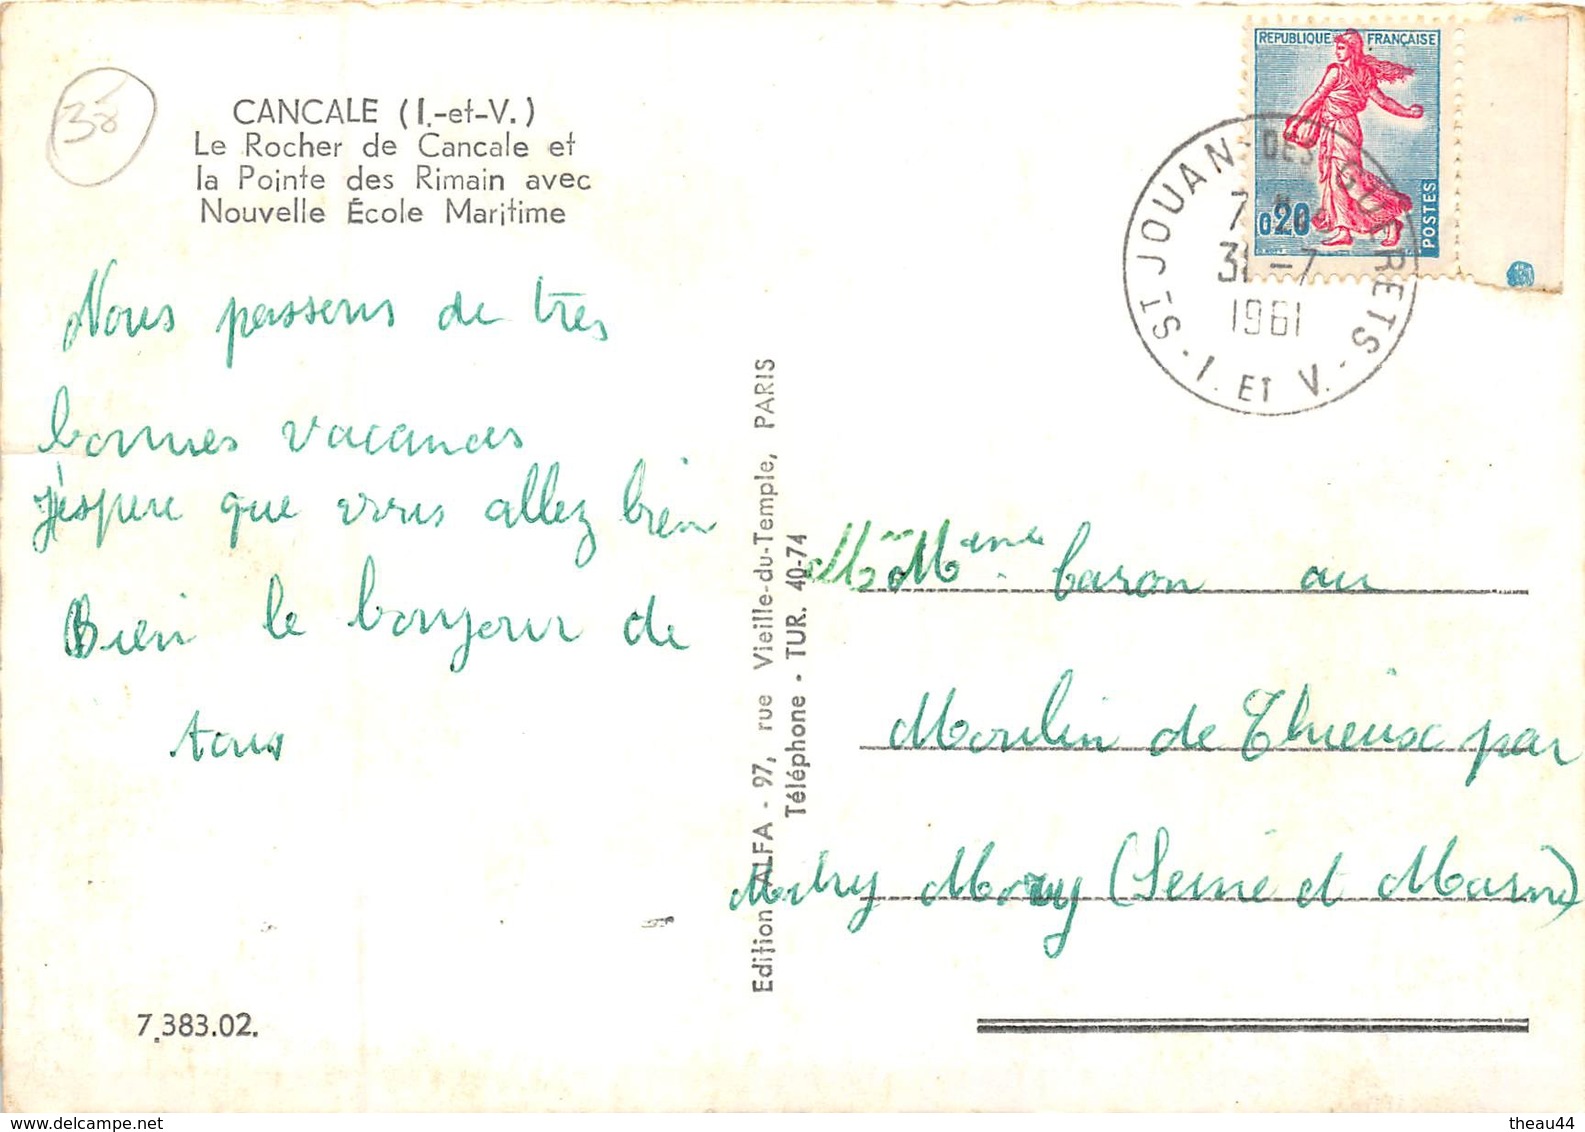 38
CANCALE (I.-et-V.)
Le Rocher de Cancale et
la Pointe des Rimain avec
Nouvelle École Maritime
Nous passons de tres
bonnes vacances
J'espere que vous allez bien
Bien le bonjour de
tous
7.383.02.
Edition ALFA - 97, rue Vieille-du-Temple, PARIS
Téléphone - TUR. 40-74
REPUBLIQUE FRANÇAISE
0,20
POSTES
ST-JOUAN-DES-GUERETS
31-7
1961
I. ET V.
baron au
Moulin de Thieux par
Mitry Mory (Seine et Marne)
theau44